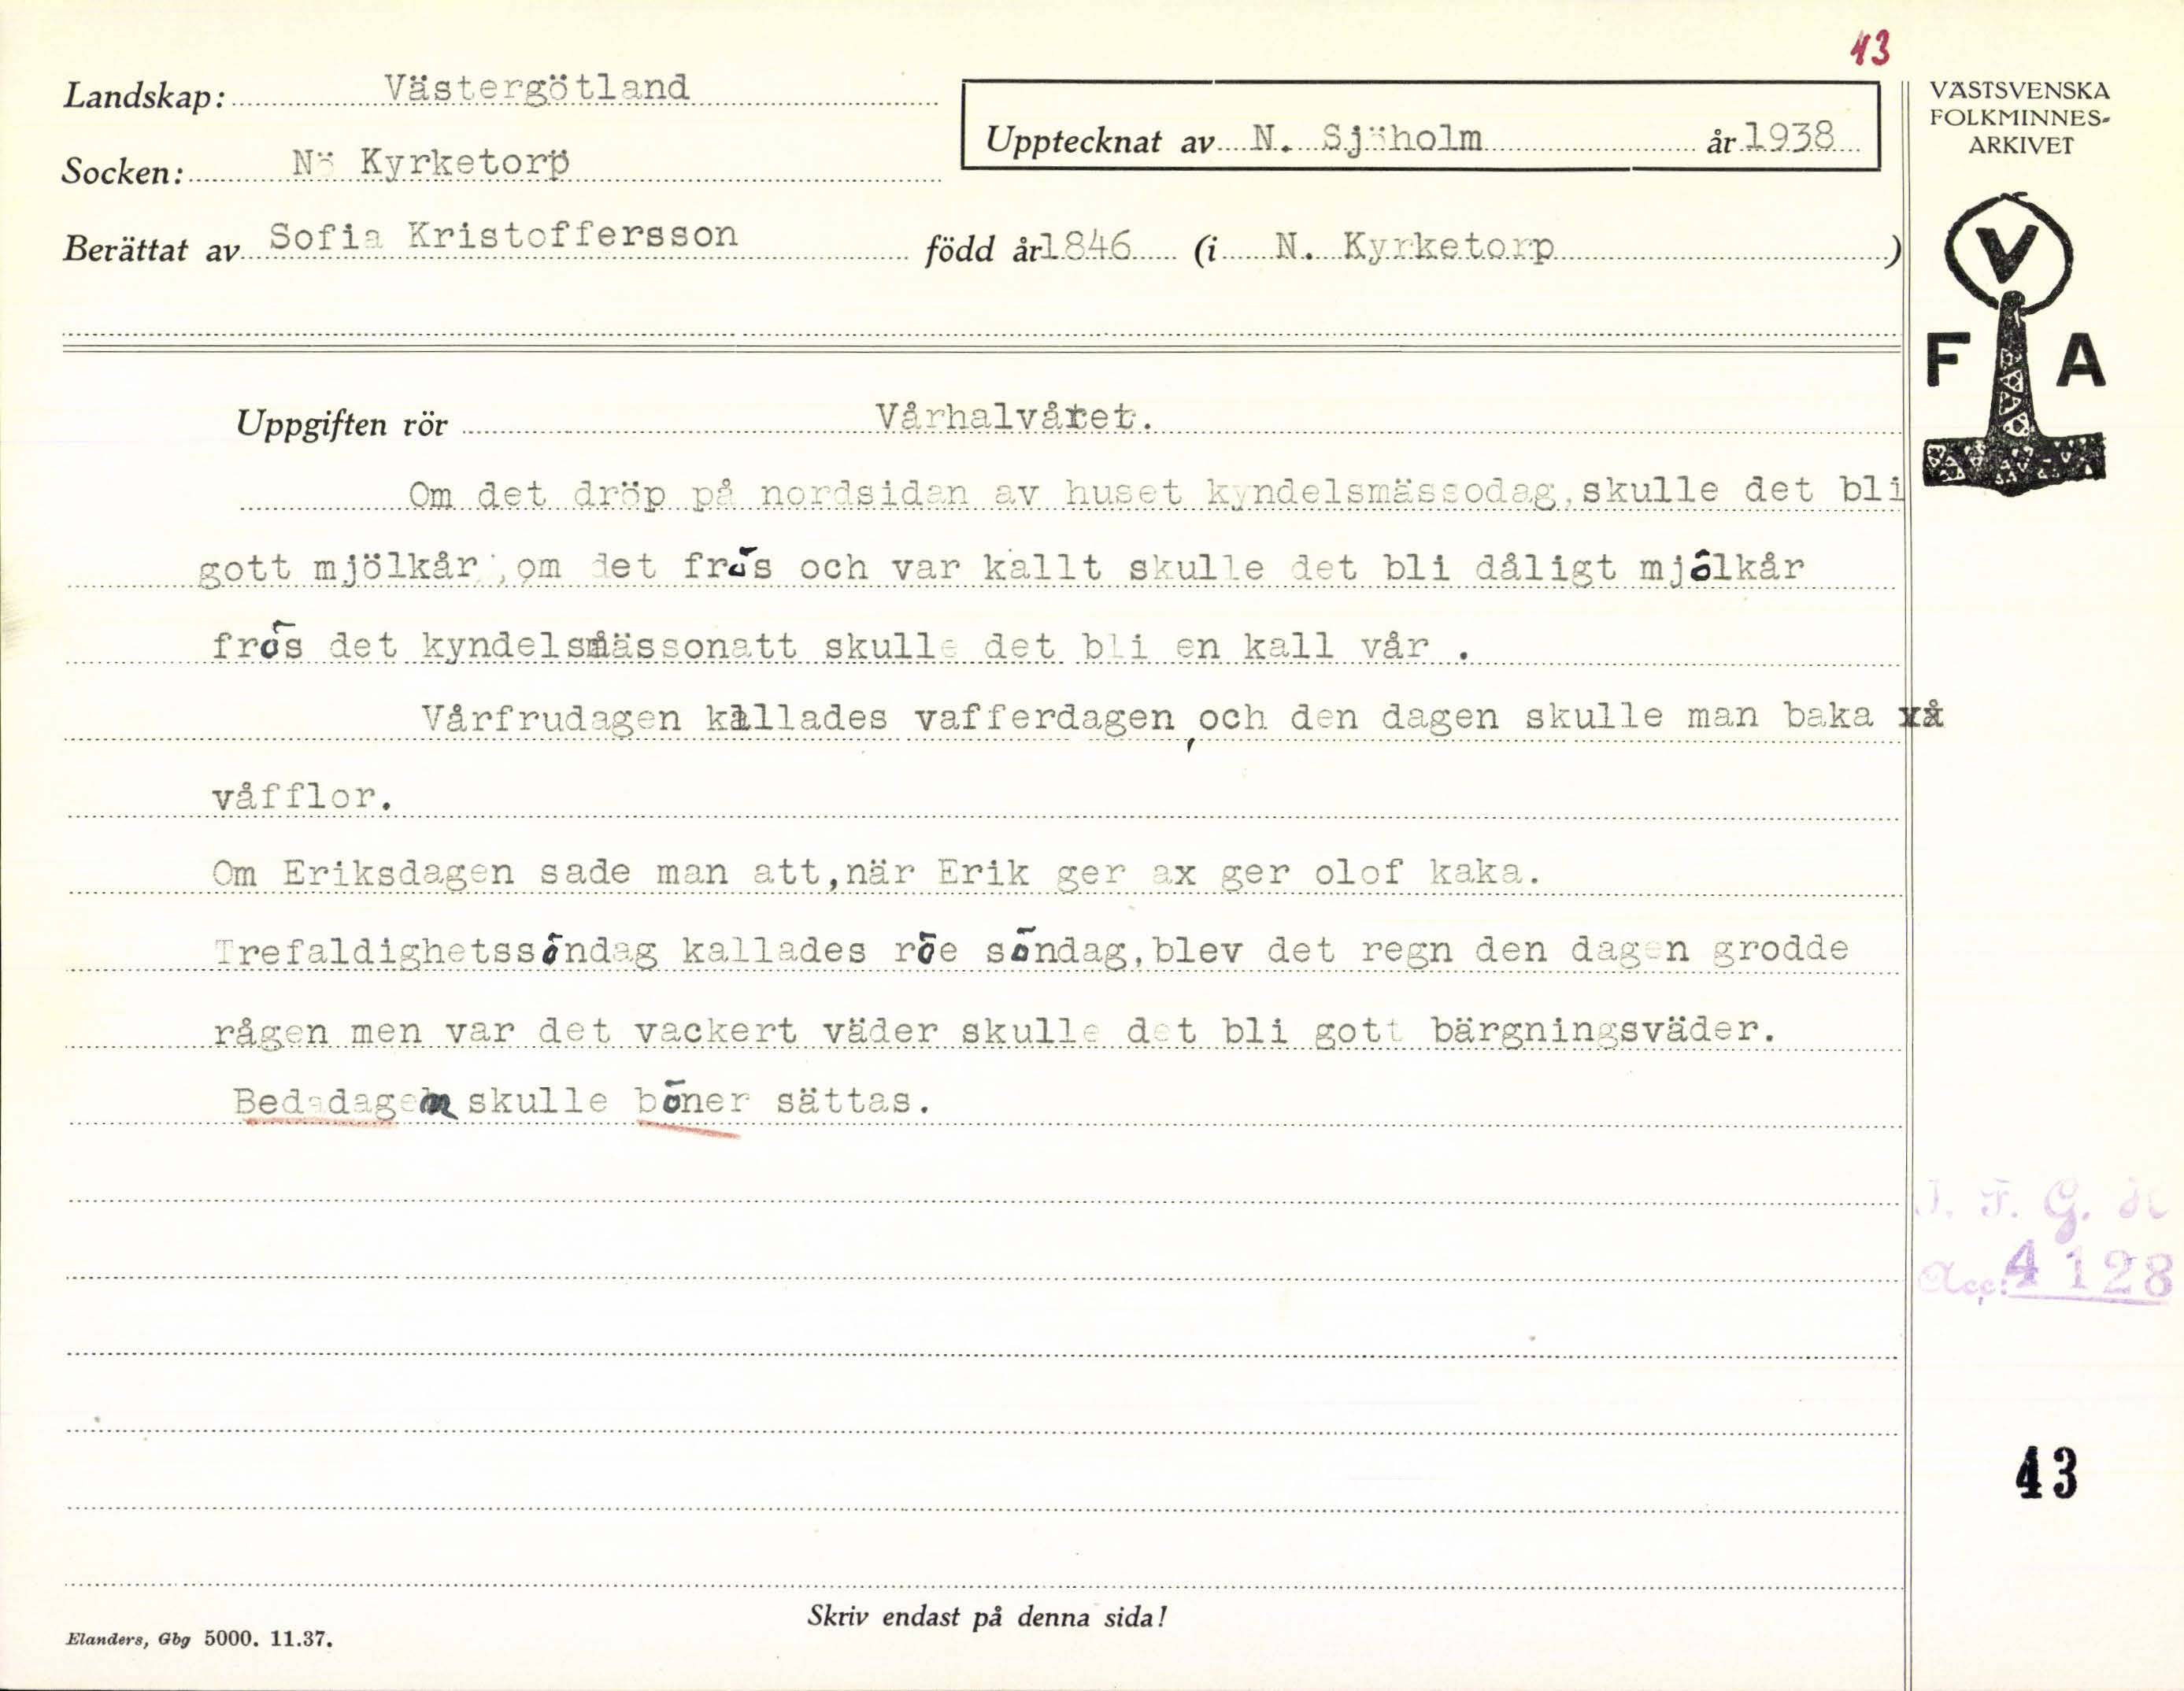 43
Landskap: Västergötland
Upptecknat av N. Sjöholm år 1938
VÄSTSVENSKA
FOLKMINNES-
ARKIVET
Socken: Nö Kyrketorp
Berättat av Sofia Kristoffersson född år 1846 (i N. Kyrketorp )
V
F A
Uppgiften rör Vårhalvåret.
Om det dröp på nordsidan av huset kyndelsmässodag,skulle det bli
gott mjölkår ,om det frös och var kallt skulle det bli dåligt mjölkår
frös det kyndelsmässonatt skulle det bli en kall vår .
Vårfrudagen kallades vafferdagen,och den dagen skulle man baka
våfflor.
Om Eriksdagen sade man att,när Erik ger ax ger olof kaka.
Trefaldighetssöndag kallades röe söndag,blev det regn den dagen grodde
rågen men var det vackert väder skulle det bli gott bärgningsväder.
Bededagen skulle böner sättas.
I. F. G. H
Acc: 4128
43
Skriv endast på denna sida!
Elanders, Gbg 5000. 11.37.